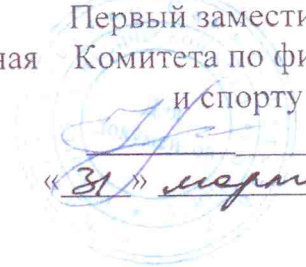 Первый замести
ная Комитета по фи
и спорту
«31» март